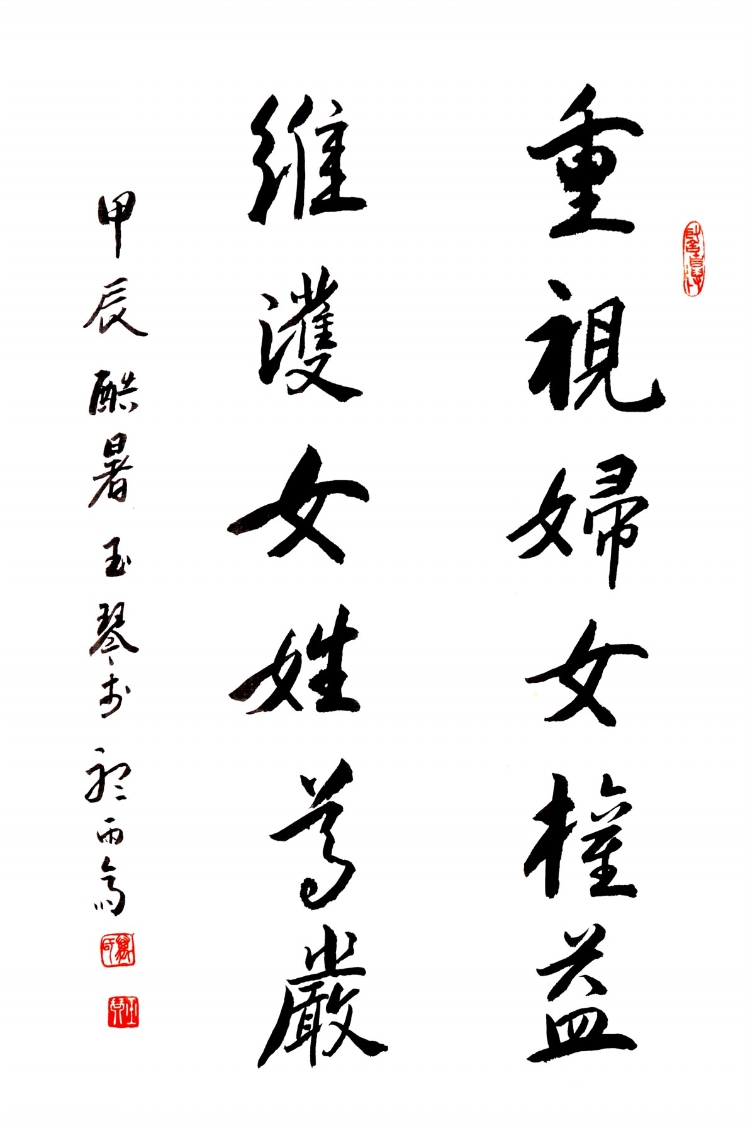 重視婦女權益
維護女姓尊嚴
甲辰酷暑玉琴於聽雨齋